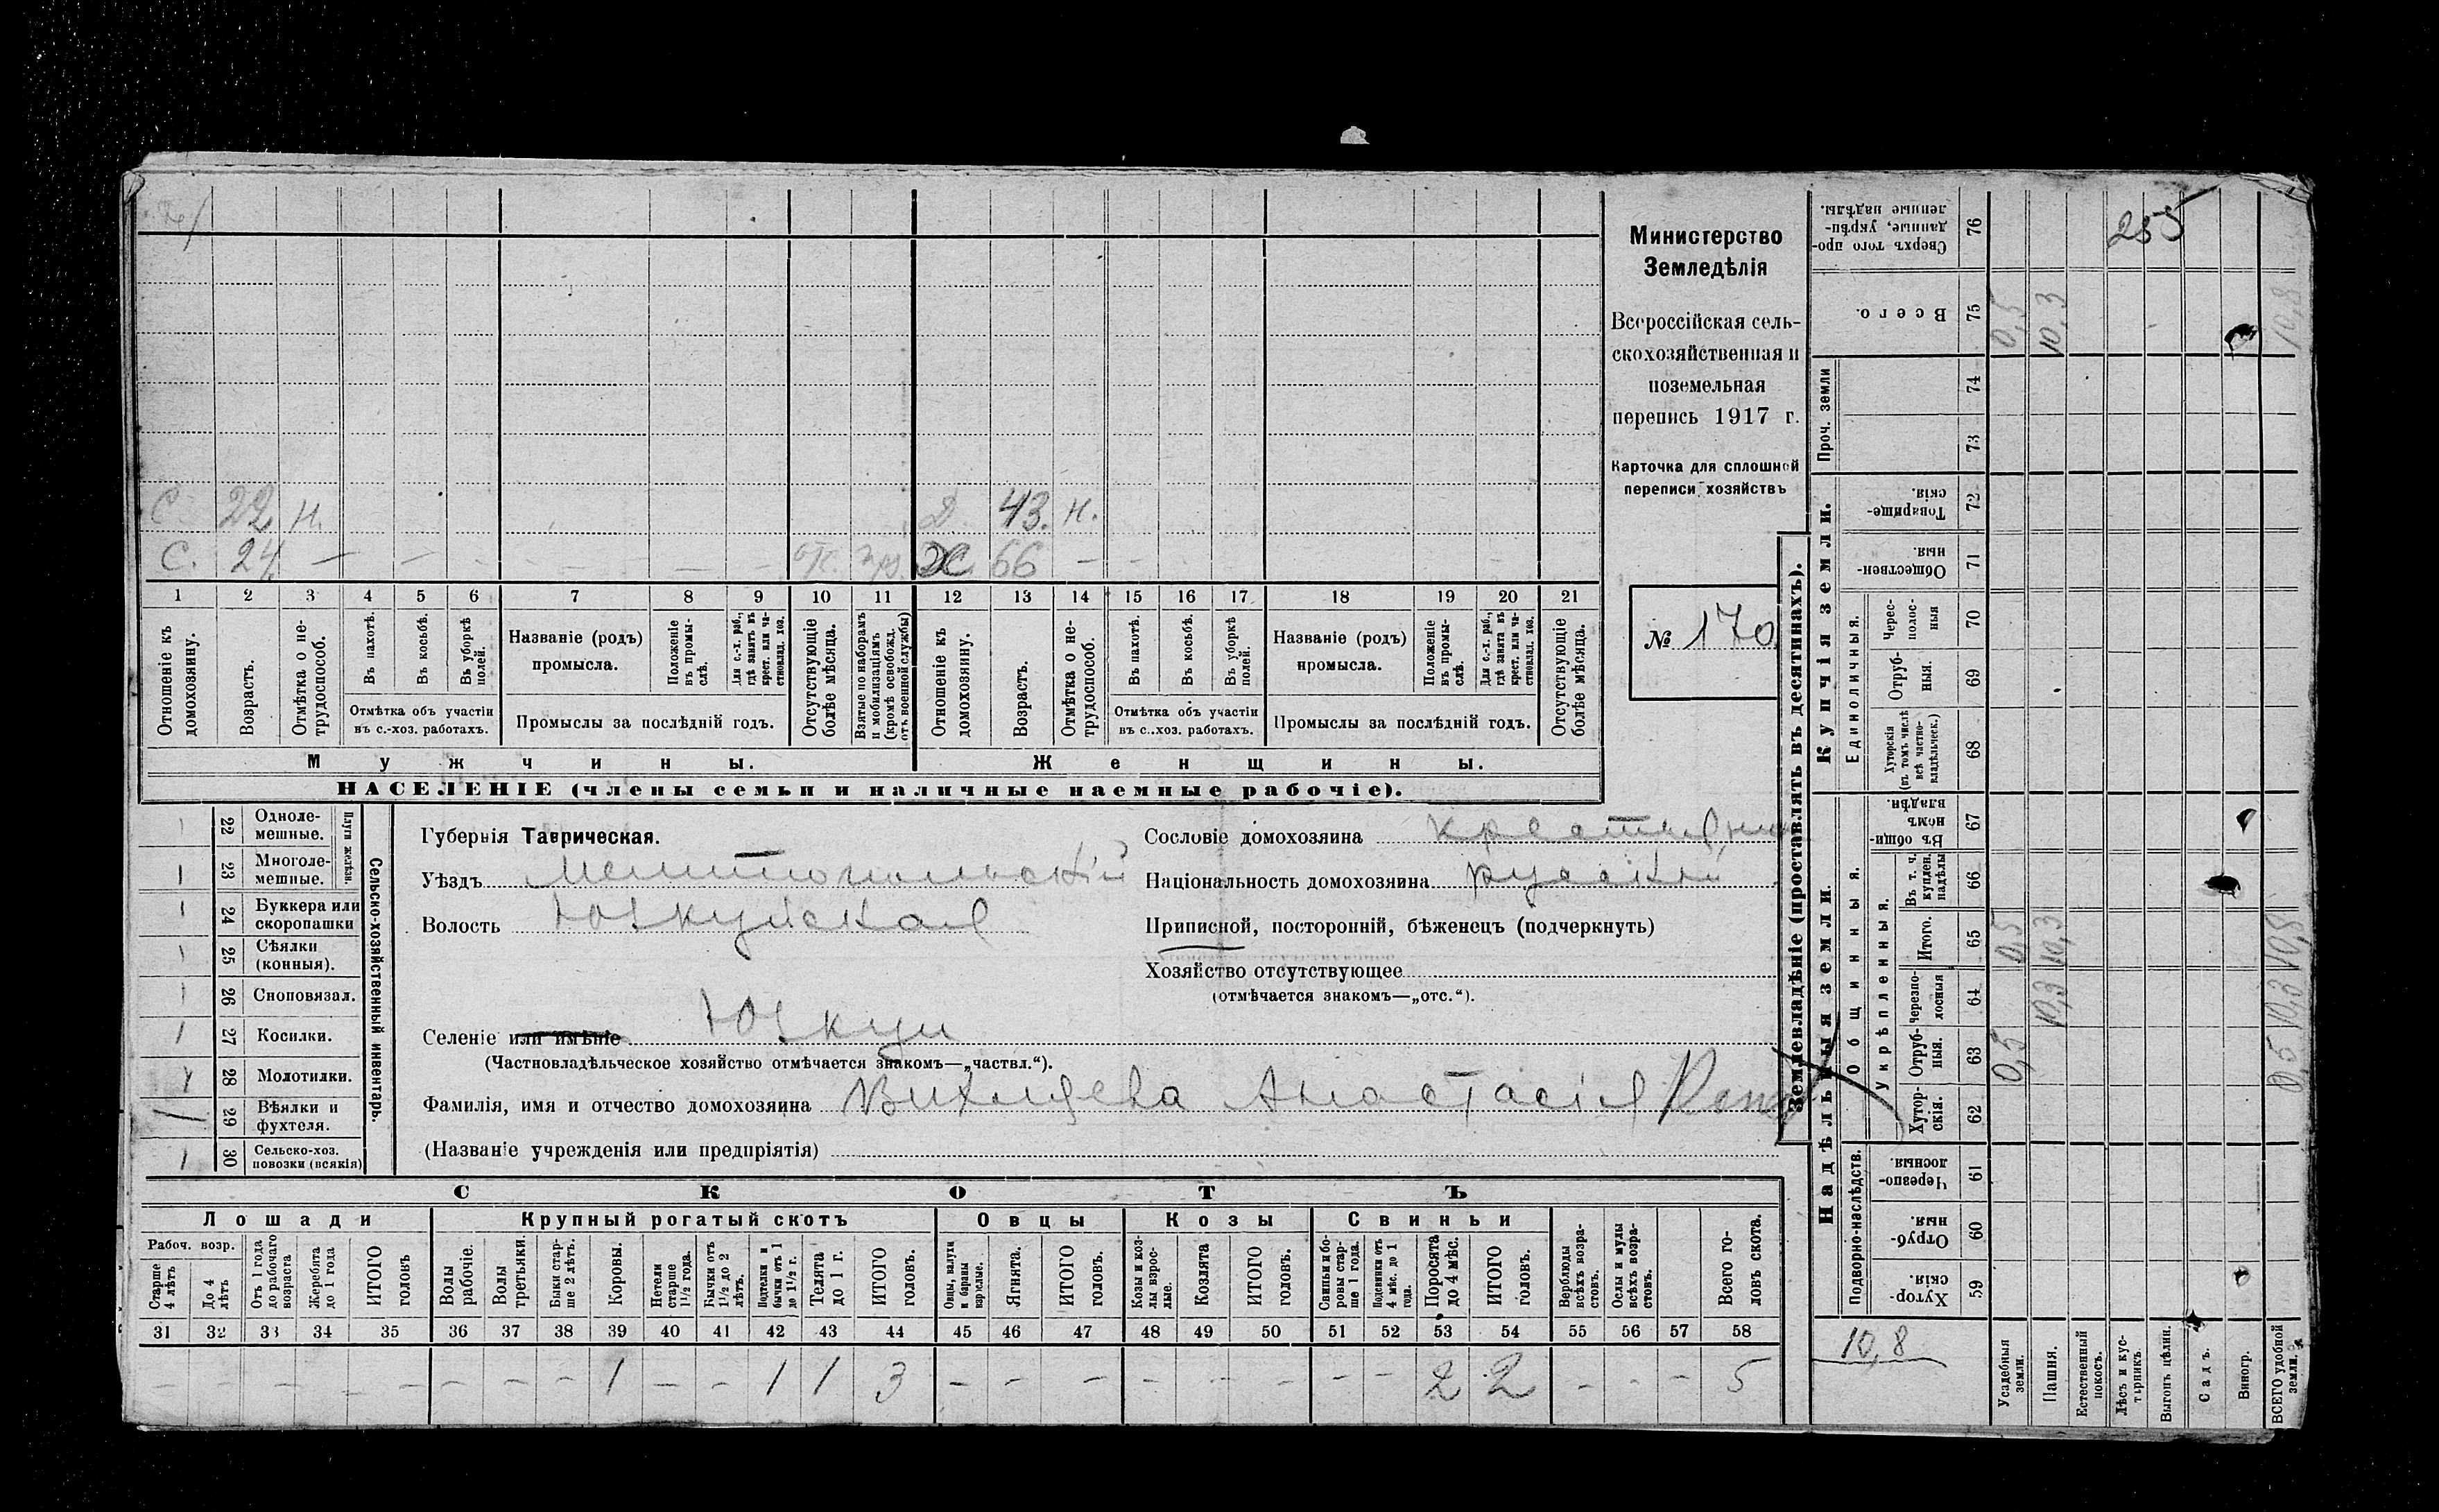 255
Министерство
Земледѣлія
Всероссійская сель-
скохозяйственная и
поземельная
перепись 1917 г.
Карточка для сплошной
переписи хозяйствъ
№ 170
С 22 Н. Д 43. Н.
С. 24 — — 66 — —
1 2 3 4 5 6 7 8 9 10 11 12 13 14 15 16 17 18 19 20 21
Отношеніе къ домохозяину.
Возрастъ.
Отмѣтка о не-трудоспособ.
Въ пахотѣ.
Въ косьбѣ.
Въ уборкѣ полей.
Отмѣтка объ участіи
въ с.-хоз. работахъ.
Названіе (родъ)
промысла.
Положеніе въ промы-слѣ.
Для с.-х. раб., гдѣ занятъ въ крест. или ча-стновлад. хоз.
Промыслы за послѣдній годъ.
Отсутствующіе болѣе мѣсяца.
Взятые по наборамъ и мобилизаціямъ (кромѣ освобожд. отъ военной службы)
Отношеніе къ домохозяину.
Возрастъ.
Отмѣтка о не-трудоспособ.
Въ пахотѣ.
Въ косьбѣ.
Въ уборкѣ полей.
Отмѣтка объ участіи
въ с.-хоз. работахъ.
Названіе (родъ)
промысла.
Положеніе въ промы-слѣ.
Для с.-х. раб., гдѣ занята въ крест. или ча-стновлад. хоз.
Промыслы за послѣдній годъ.
Отсутствующіе болѣе мѣсяца.
Мужчины. Женщины.
НАСЕЛЕНІЕ (члены семьи и наличные наемные рабочіе).
22 Одноле-мешные.
1 23 Многоле-мешные.
Плуги желѣзн.
1 24 Буккера или скоропашки
1 25 Сѣялки (конныя).
1 26 Сноповязал.
1 27 Косилки.
28 Молотилки.
29 Вѣялки и фухтеля.
1 30 Сельско-хоз. повозки (всякія)
Сельско-хозяйственный инвентарь.
Губернія Таврическая.
Уѣздъ Мелитопольскій
Волость Юзкуйская
Селеніе или имѣніе Юзкуи
(Частновладѣльческое хозяйство отмѣчается знакомъ—„частвл.“).
Сословіе домохозяина
Національность домохозяина русскій
Приписной, посторонній, бѣженецъ (подчеркнуть)
Хозяйство отсутствующее
(отмѣчается знакомъ—„отс.“).
Фамилія, имя и отчество домохозяина Вихляева Анастасія
(Названіе учрежденія или предпріятія)
СКОТЪ
Лошади Крупный рогатый скотъ Овцы Козы Свиньи
Рабоч. возр.
Старше 4 лѣтъ
До 4 лѣтъ
Отъ 1 года до рабочаго возраста
Жеребята до 1 года
ИТОГО головъ
Волы рабочіе.
Волы третьяки.
Быки стар-ше 2 лѣтъ.
Коровы.
Нетели старше 1½ года.
Бычки отъ 1½ до 2 лѣтъ.
Подтелки и бычки отъ 1 до 1½ г.
Телята до 1 г.
ИТОГО головъ.
Овцы, валухи и бараны взрослые.
Ягнята.
ИТОГО головъ.
Козы и коз-лы взрос-лые.
Козлята
ИТОГО головъ.
Свиньи и бо-ровы стар-ше 1 года.
Подсвинки отъ 4 мѣс. до 1 года.
Поросята до 4 мѣс.
ИТОГО головъ.
Верблюды всѣхъ возра-стовъ.
Ослы и мулы всѣхъ возра-стовъ.
Всего го-ловъ скота.
31 32 33 34 35 36 37 38 39 40 41 42 43 44 45 46 47 48 49 50 51 52 53 54 55 56 57 58
— — — — — — — — 1 — — 1 1 3 — — — — — — — — 2 2 — — — 5
Землевладѣніе (проставлять въ десятинахъ).
Надѣльныя земли. Купчія земли.
Проч. земли
Подворно-наслѣдств.
Общинныя.
Укрѣпленныя.
Единоличныя.
Хутор-скія. 59
Отруб-ныя. 60
Черезпо-лосныя 61
Хутор-скія. 62
Отруб-ныя. 63
Черезпо-лосныя 64
Итого. 65
Въ т. ч. куплен. надѣлы 66
Въ общин-номъ владѣн. 67
Хуторскія (въ томъ числѣ всѣ частно-владѣльческ.) 68
Отруб-ныя. 69
Черес-полос-ныя 70
Обществен-ныя. 71
Товарище-скія. 72
73
74
Всего. 75
Сверхъ того про-данные, укрѣп-ленные надѣлы. 76
10,8
Усадебныя земли. 0,5 0,5
Пашня. 10,3 10,3 10,3
Естественный покосъ.
Лѣсъ и кус-тарникъ.
Выгонъ цѣлин.
Садъ.
Виногр.
ВСЕГО удобной земли. 0,5 10,3 10,8 10,8